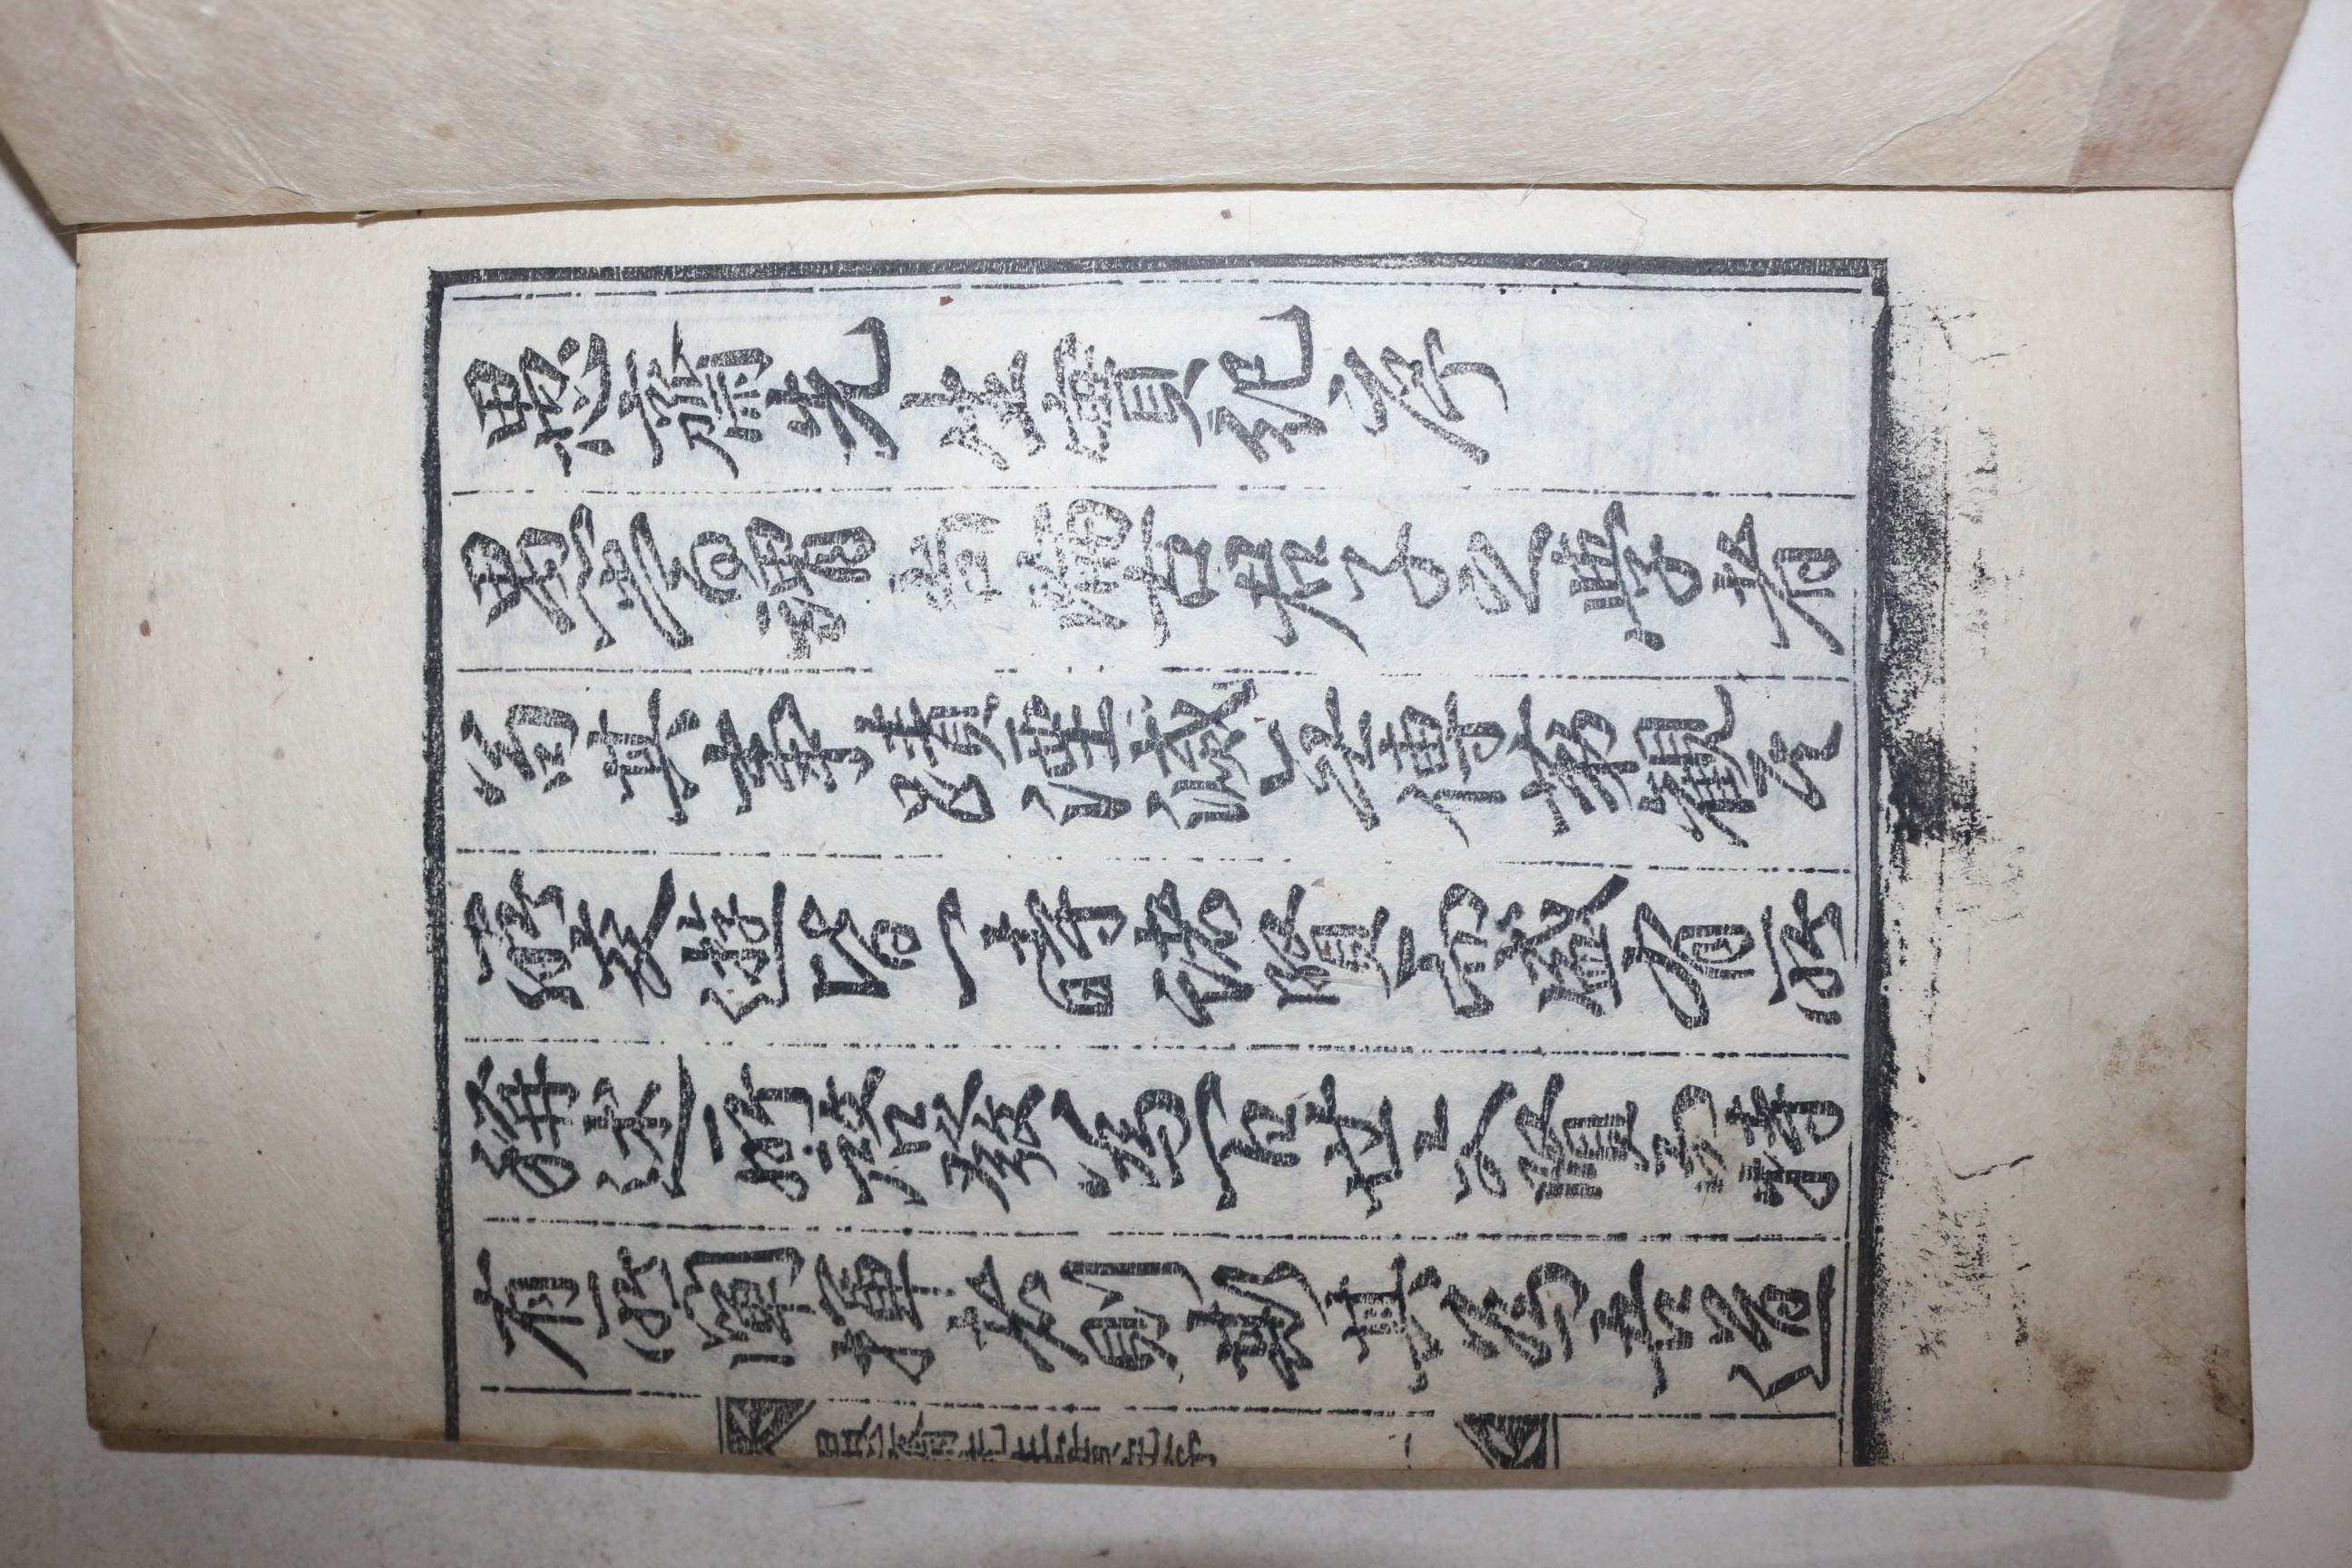 愚齋先生實紀序
愚嘗謂尚論古君子之學者
苟其事蹟湮滅無傳苐觀其
所交遊皆一時諸賢而盛有所
稱述所啓發爲百世之賢而特
有所闡揮者則斯其爲吾道